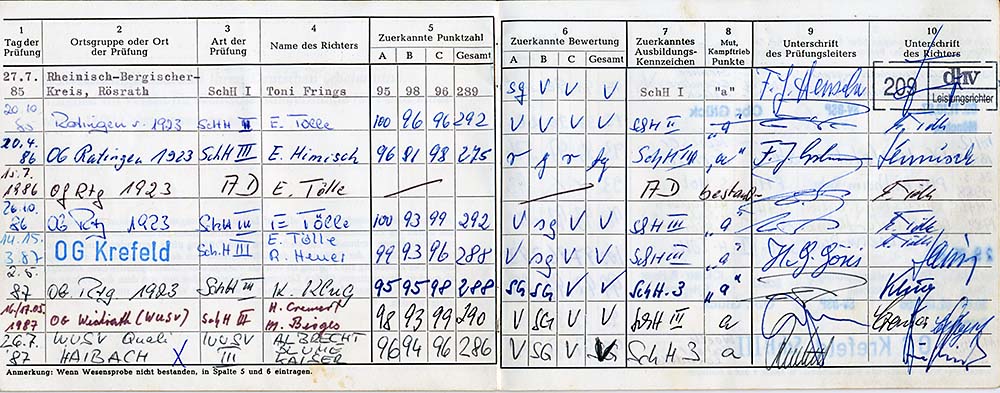 1 2 3 4 5 6 7 8 9 10
Tag der Prüfung Ortsgruppe oder Ort der Prüfung Art der Prüfung Name des Richters Zuerkannte Punktzahl A B C Gesamt Zuerkannte Bewertung A B C Gesamt Zuerkanntes Ausbildungs-Kennzeichen Mut, Kampftrieb Punkte Unterschrift des Prüfungsleiters Unterschrift des Richters
27.7. 85 Rheinisch-Bergischer-Kreis, Rösrath SchH I Toni Frings 95 98 96 289 sg V V V SchH I "a" 209 dhv Leistungsrichter
20.10 85 Ratingen v. 1923 SchH II E. Tölle 100 96 96 292 V V V V SchH II "a"
20.4. 86 OG Ratingen 1923 SchH III E. Himisch 96 81 98 275 SchH III "a"
1986 OG Rtg 1923 AD E. Tölle AD bestanden
26.10. 86 OG Rtg 1923 SchH III E Tölle 100 93 99 292 V sg V V SchH III "a"
14.15. 3.87 OG Krefeld SchH III E. Tölle R. Heuer 99 93 96 288 V sg V V SchH III "a"
2.5. 87 OG Rtg 1923 SchH III K. Klug 95 95 98 288 SG SG V V SchH.3 "a" Klug
16/17.05. 1987 (WUSV) SchH III M. Birges 98 93 99 290 V SG V V SchH III a
26.7. 87 WUSV Quali HAIBACH X WUSV III ALBRECHT 96 94 96 286 V SG V SchH 3 a
Anmerkung: Wenn Wesensprobe nicht bestanden, in Spalte 5 und 6 eintragen.